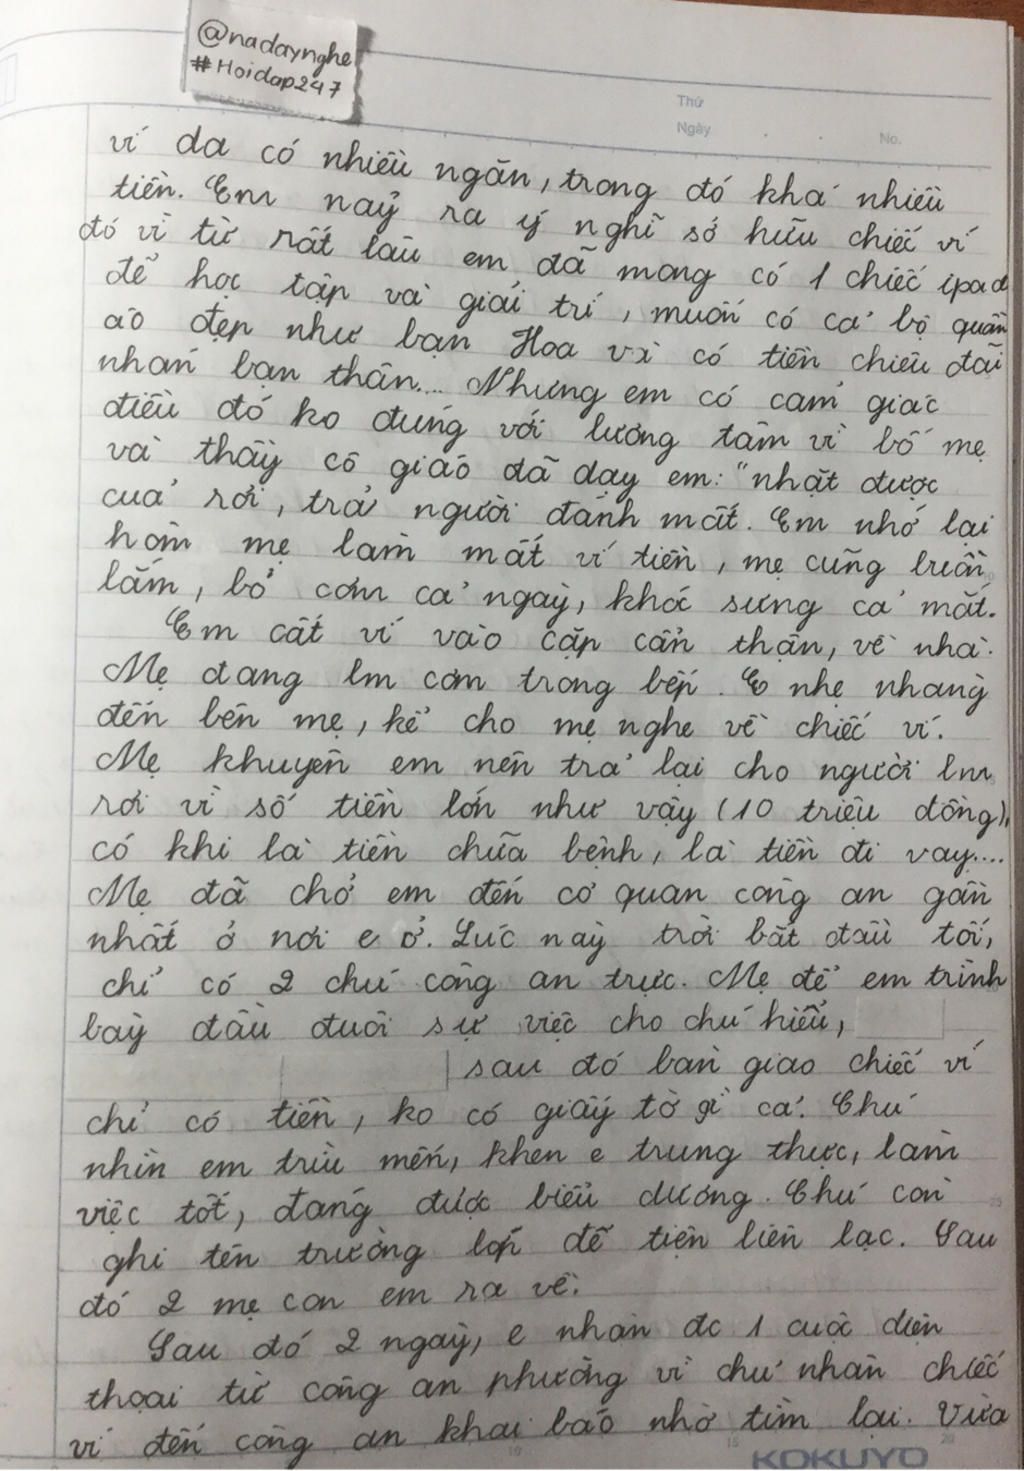 @nadaynghe
#Hoidap247
Thứ
Ngày
No.
ví da có nhiều ngăn, trong đó khá nhiều
tiền. Em nảy ra ý nghĩ sở hữu chiếc ví
đó vì từ rất lâu em đã mong có 1 chiếc ipad
để học tập và giải trí, muốn có cả bộ quần
áo đẹp như bạn Hoa và có tiền chiêu đãi
nhóm bạn thân... Nhưng em có cảm giác
điều đó ko đúng với lương tâm vì bố mẹ
và thầy cô giáo đã dạy em: "nhặt được
của rơi, trả người đánh mất. Em nhớ lại
hôm mẹ làm mất ví tiền, mẹ cũng buồn
lắm, bỏ cơm cả ngày, khóc sưng cả mắt.
Em cất ví vào cặp cẩn thận, về nhà.
Mẹ đang lm cơm trong bếp. E nhẹ nhàng
đến bên mẹ, kể cho mẹ nghe về chiếc ví.
Mẹ khuyên em nên trả lại cho người lm
rơi vì số tiền lớn như vậy (10 triệu đồng),
có khi là tiền chữa bệnh, là tiền đi vay....
Mẹ đã chở em đến cơ quan công an gần
nhất ở nơi e ở. Lúc này trời bắt đầu tối,
chỉ có 2 chú công an trực. Mẹ để em trình
bày đầu đuôi sự việc cho chú hiểu,
sau đó bàn giao chiếc ví
chỉ có tiền, ko có giấy tờ gì cả. Chú
nhìn em trìu mến, khen e trung thực, làm
việc tốt, đáng được biểu dương. Chú còn
ghi tên trường lớp để tiện liên lạc. Sau
đó 2 mẹ con em ra về.
Sau đó 2 ngày, e nhận đc 1 cuộc điện
thoại từ công an phường vì chủ nhân chiếc
ví đến công an khai báo nhờ tìm lại. Vừa
KOKUYO